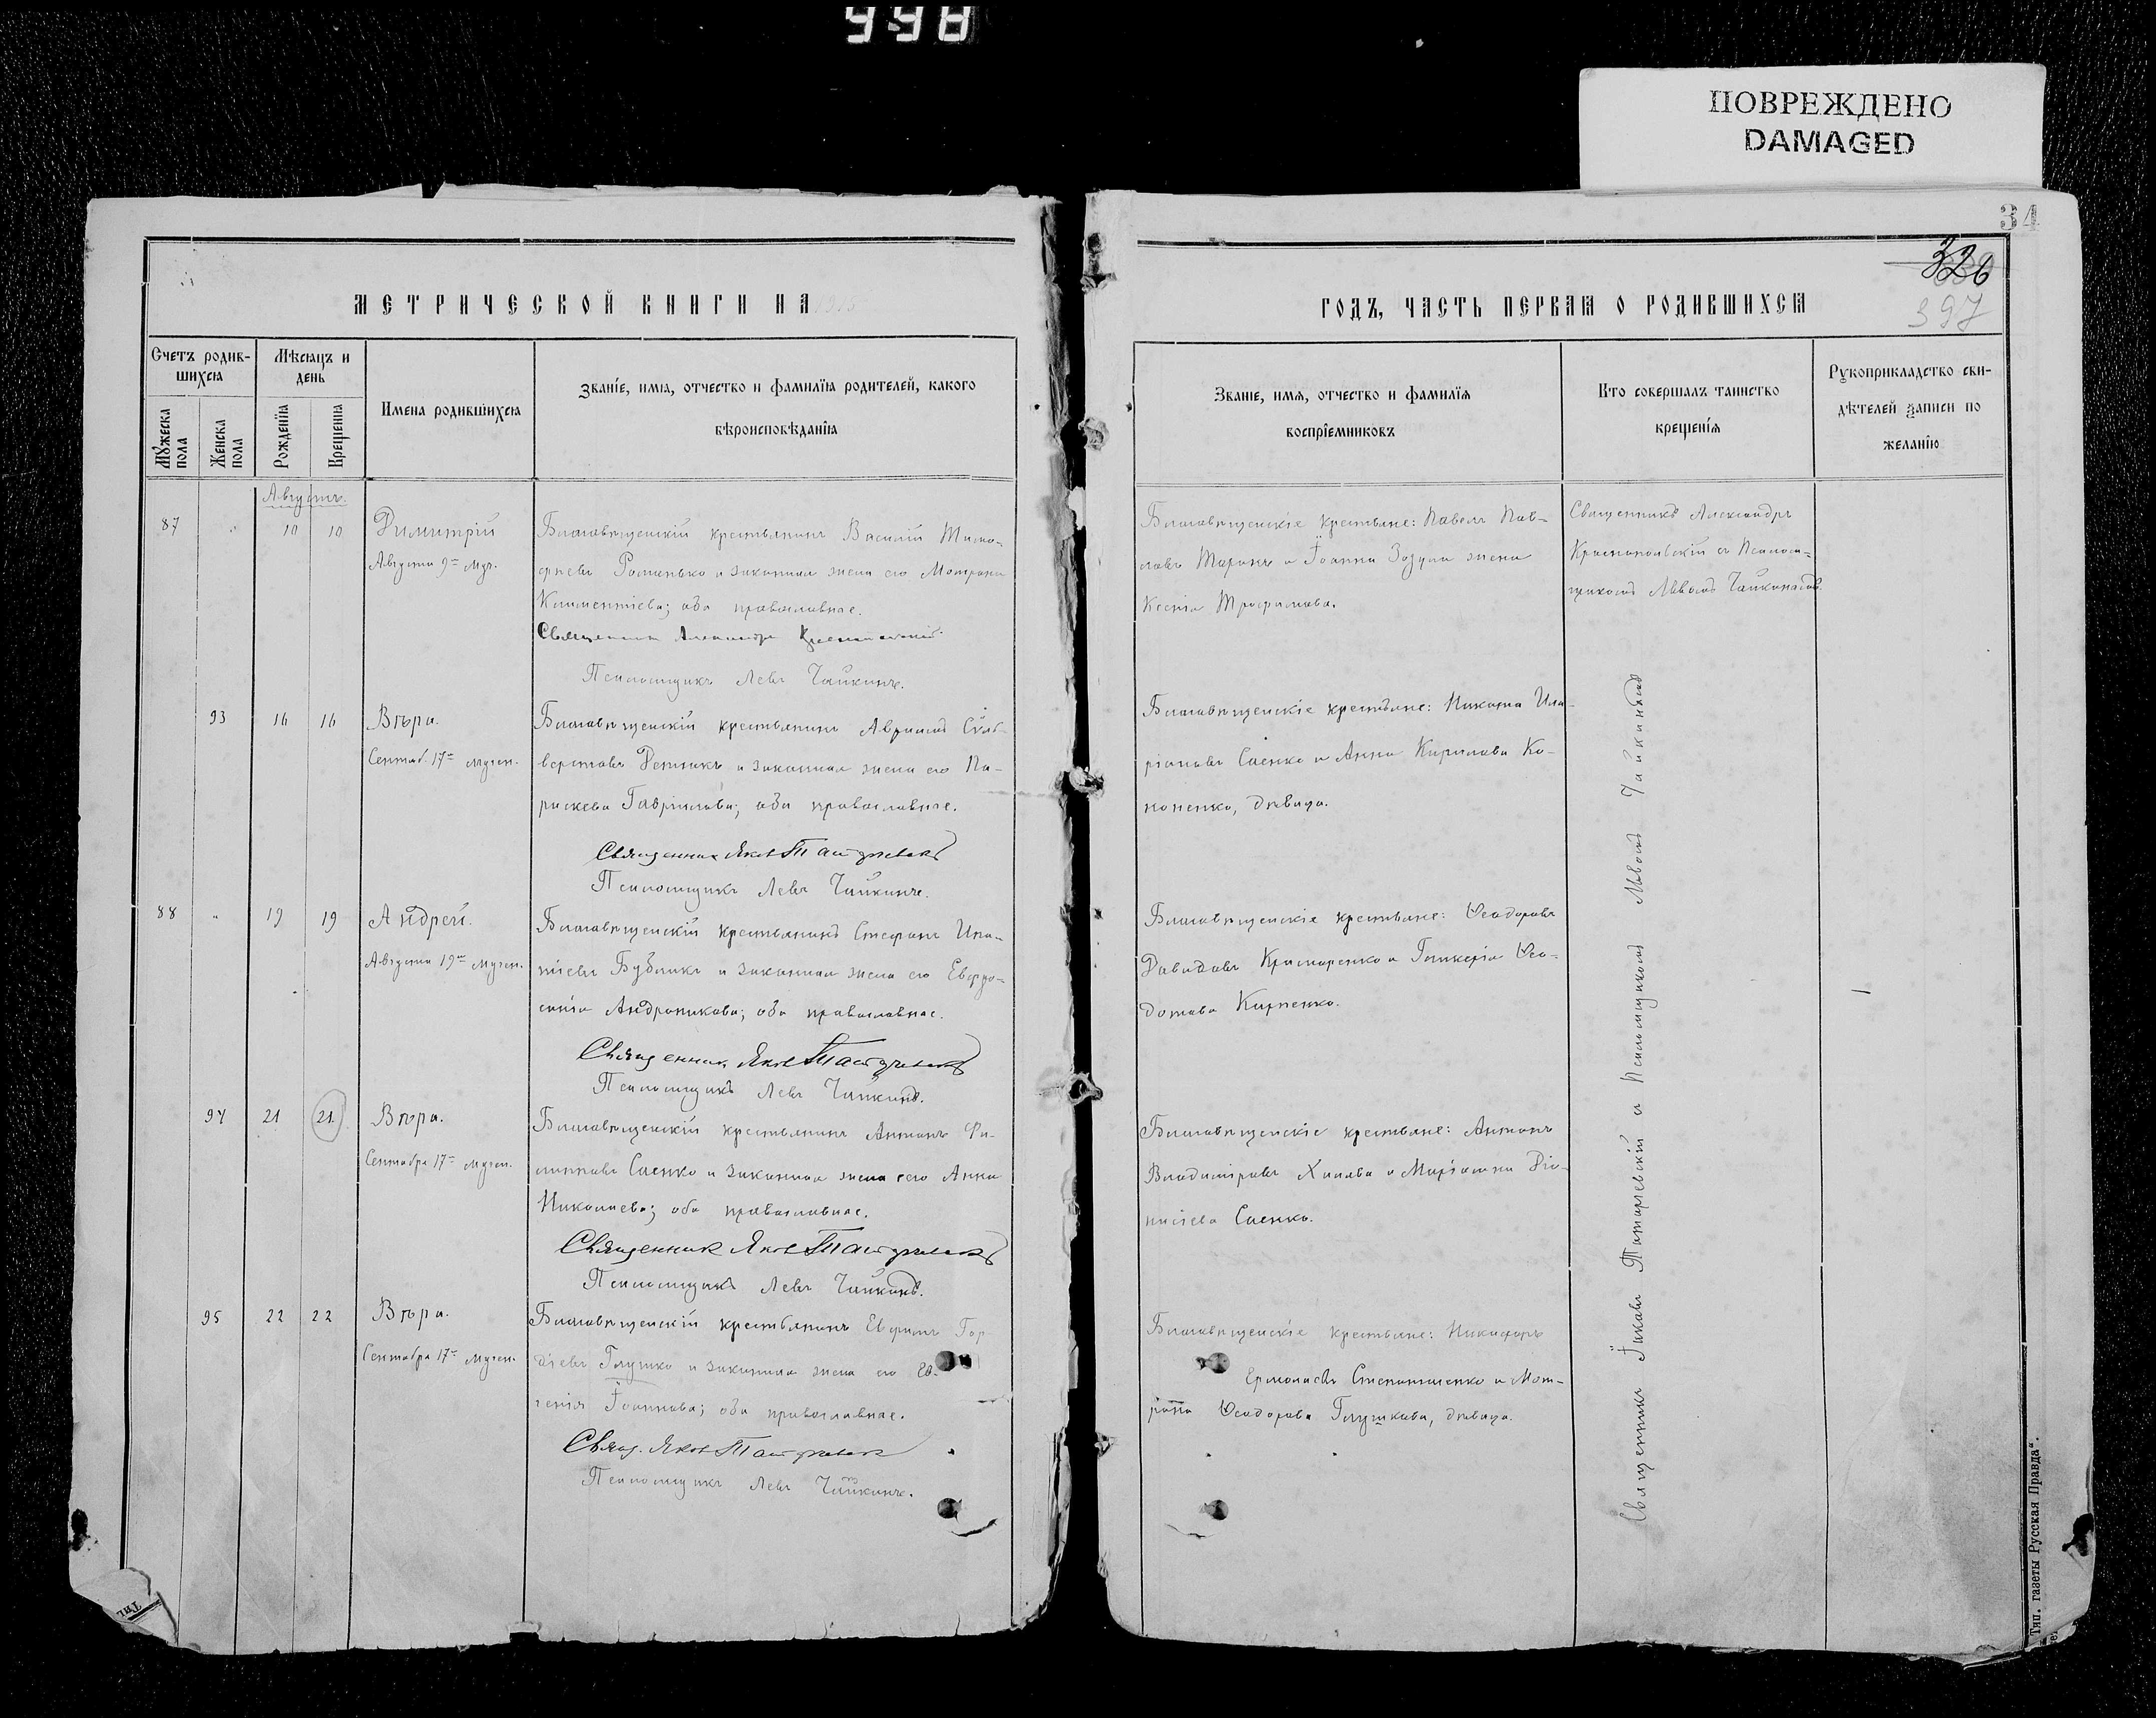 998
ПОВРЕЖДЕНО
DAMAGED
34
326
397
МЕТРИЧЕСКОЙ КНИГИ НА 1915
ГОДЪ, ЧАСТЬ ПЕРВАЯ О РОДИВШИХСЯ
Счетъ родив-
шихся
Мужеска пола
Женска пола
Мѣсяцъ и
день
Рожденїя
Крещенїя
Имена родившихся
Званїе, имя, отчество и фамилїя родителей, какого
вѣроисповѣданїя
Званїе, имя, отчество и фамилїя
воспрїемниковъ
Кто совершалъ таинство
крещенїя
Рукоприкладство сви-
дѣтелей записи по
желанїю
Августъ.
87 " 10 10 Димитрій
Августа 9го муч.
Благовѣщенскій крестьянинъ Василій Тимо-
феевъ Романько и законная жена его Матрона
Климентіева; оба православные.
Священникъ Александръ Краснопольскій
Псаломщикъ Левъ Чайкинъ.
Благовѣщенскіе крестьяне: Павелъ Пав-
ловъ Таранъ и Іоанна Зозули жена
Ксенія Трофимова.
Священникъ Александръ
Краснопольскій съ Псалом-
щикомъ Львомъ Чайкинымъ.
93 16 16 Вѣра.
Сентяб. 17го мучен.
Благовѣщенскій крестьянинъ Авраамъ Сил-
верстовъ Репникъ и законная жена его Па-
раскева Гавріилова; оба православные.
Священник Яков Татаревскій
Псаломщикъ Левъ Чайкинъ.
Благовѣщенскіе крестьяне: Никита Ила-
ріоновъ Саенко и Анна Кирилова Ко-
ноненко, дѣвица.
88 " 19 19 Андрей.
Августа 19го мучен.
Благовѣщенскій крестьянинъ Стефанъ Ипа-
тіевъ Бубликъ и законная жена его Евфро-
синія Андроникова; оба православные.
Священник Яков Татаревскій
Псаломщикъ Левъ Чайкинъ.
Благовѣщенскіе крестьяне: Ѳеодоръ
Давидовъ Крамаренко и Гликерія Ѳео-
дотова Кирпенко.
94 21 21 Вѣра.
Сентября 17го мучен.
Благовѣщенскій крестьянинъ Антонъ Фи-
липповъ Саенко и законная жена его Анна
Николаева; оба православные.
Священник Яков Татаревскій
Псаломщикъ Левъ Чайкинъ.
Благовѣщенскіе крестьяне: Антонъ
Владиміровъ Халява и Маріамна Діо-
нисіева Саенко.
95 22 22 Вѣра.
Сентября 17го мучен.
Благовѣщенскій крестьянинъ Ефремъ Гор-
діевъ Глушко и законная жена его Ев-
генія Іоаннова; оба православные.
Свящ. Яков Татаревскій
Псаломщикъ Левъ Чайкинъ.
Благовѣщенскіе крестьяне: Никифоръ
Ермолаевъ Степаненко и Мат-
рона Ѳеодорова Глушкова, дѣвица.
Священникъ Іаковъ Татаревскій и Псаломщикомъ Львомъ Чайкинымъ
Тип. газеты Русская Правда".